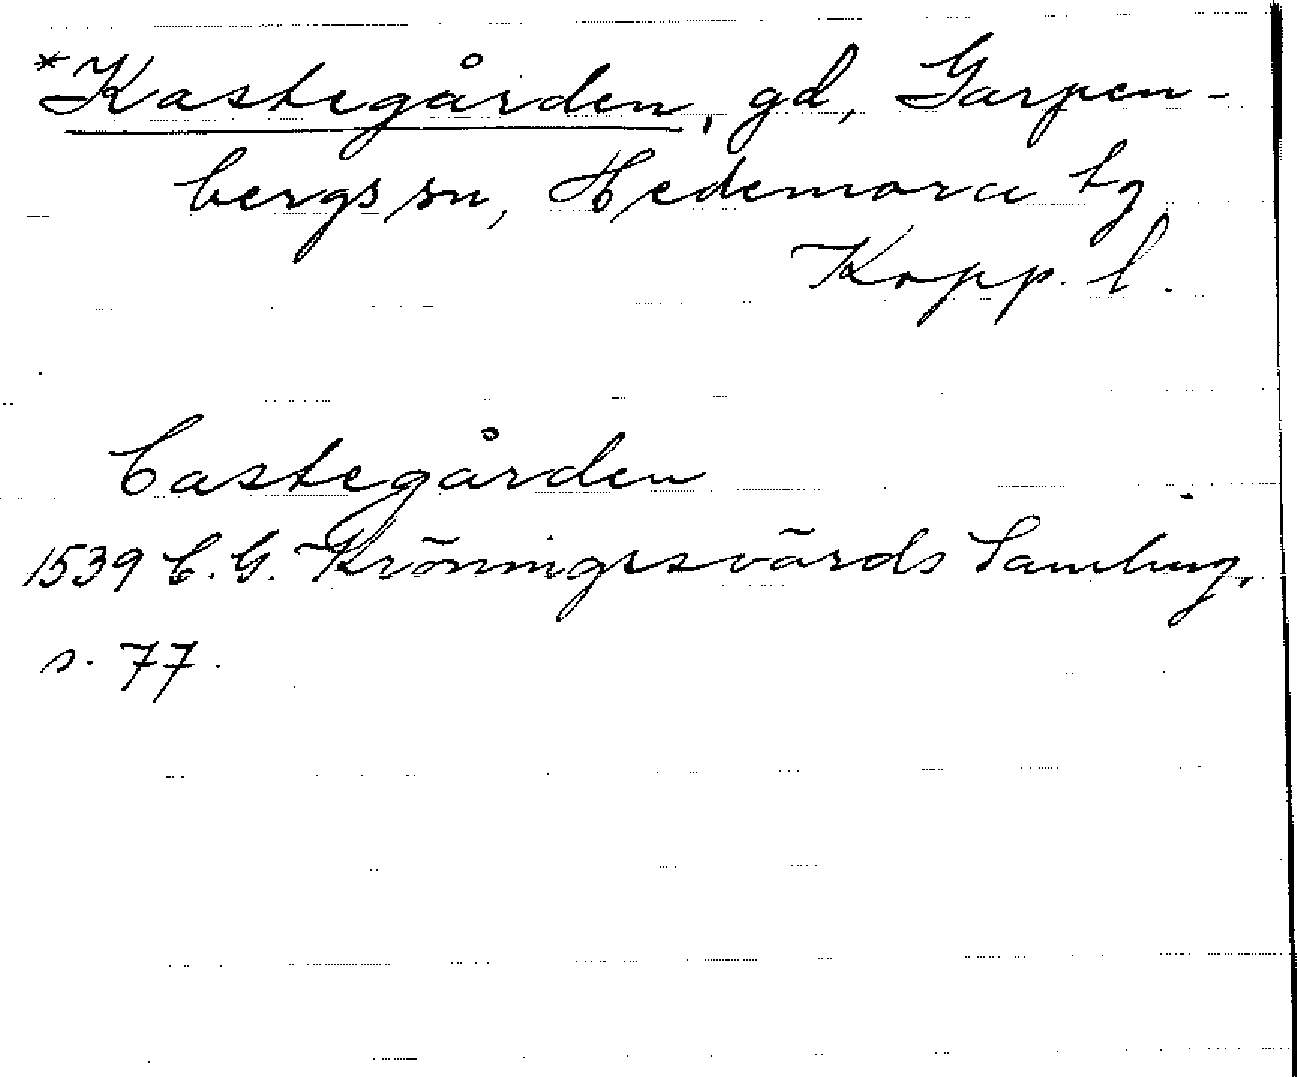 *Kastegården, gd, Garpen-
bergs sn, Hedemora tg
Kopp. l.
Castegården
1539 C. G. Kröningssvärds Samling,
s. 77.